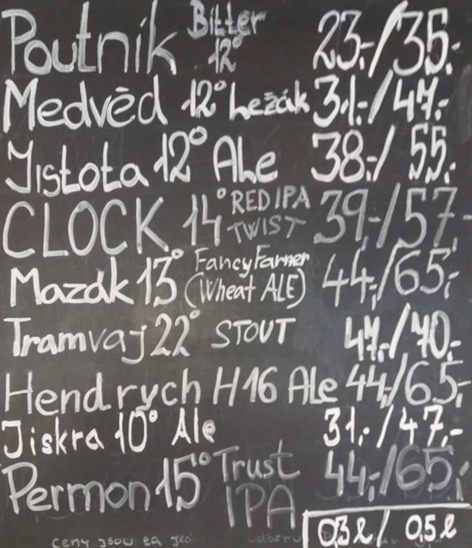 Poutník Bitter 12° 23,-/35,-
Medvěd 12° Ležák 31,-/47,-
Jistota 12° Ale 38,-/55,-
CLOCK 14° RED IPA TWIST 39,-/57,-
Mazák 13° Fancy Farmer (Wheat ALE) 44,-/65,-
Tramvaj 22° STOUT 47,-/70,-
Hendrych H16 Ale 44,-/65,-
Jiskra 10° Ale 31,-/47,-
Permon 15° Trust IPA 44,-/65,-
0,3 l / 0,5 l
ceny jsou za